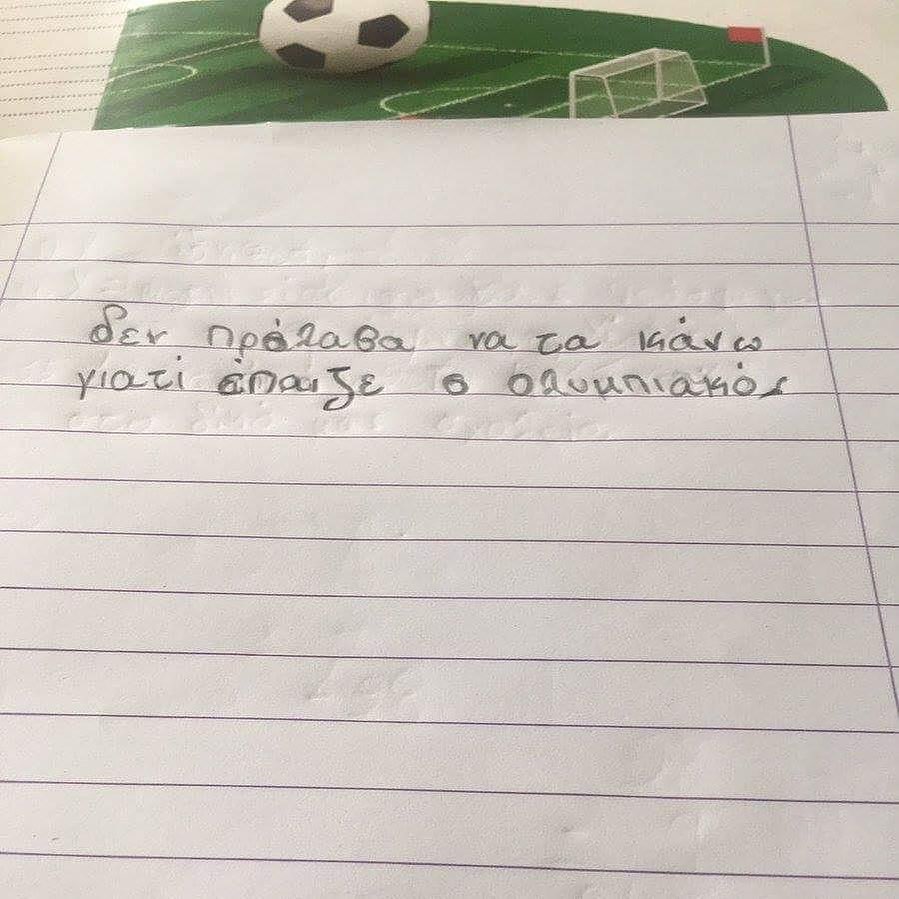 δεν πρόλαβα να τα κάνω
γιατί έπαιζε ο ολυμπιακός